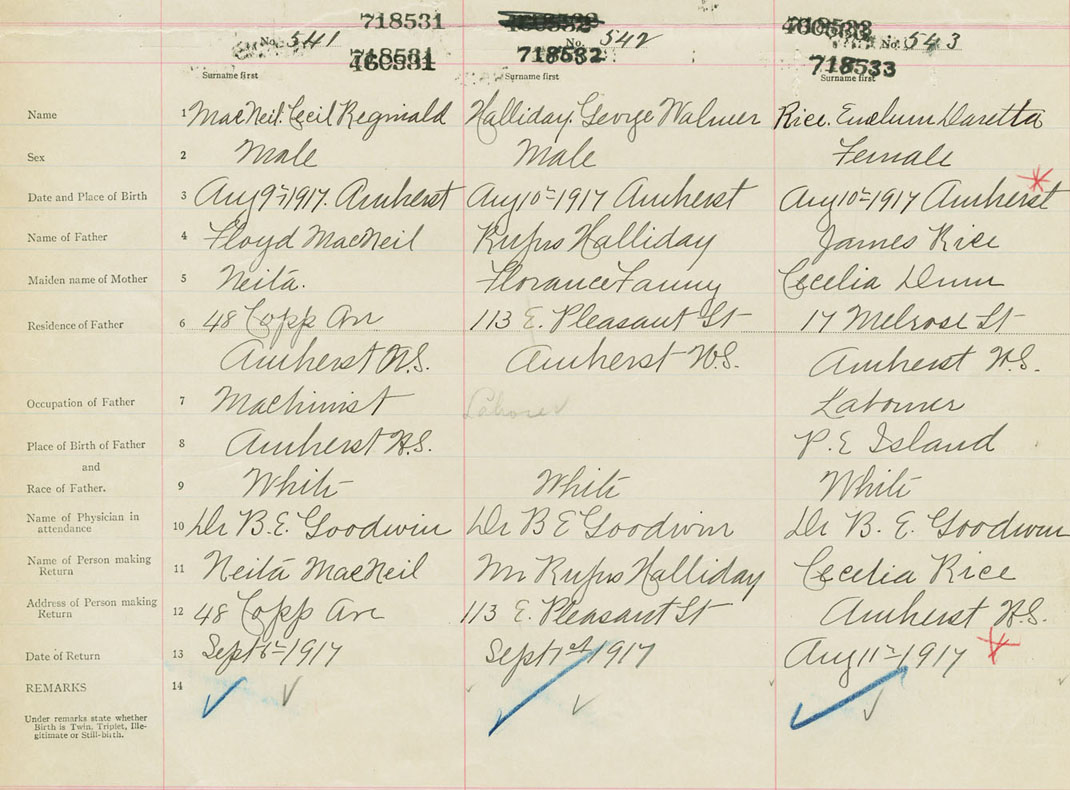 718531 718533
No. 541 No. 542 No. 543
718531 718532 718533
Surname first Surname first Surname first
Name 1 MacNeil. Cecil Reginald Halliday. George Walmer Rice. Evelum Daretta
Sex 2 Male Male Female
Date and Place of Birth 3 Aug 9th 1917. Amherst Aug 10th 1917 Amherst Aug 10th 1917 Amherst
Name of Father 4 Floyd MacNeil Rufus Halliday James Rice
Maiden name of Mother 5 Neita. Florance Fanny Cecelia Dunn
Residence of Father 6 48 Copp Av 113 E. Pleasant St 17 Melrose St
Amherst N.S. Amherst N.S. Amherst N.S.
Occupation of Father 7 Machinist Laborer Labourer
Place of Birth of Father 8 Amherst N.S. P.E Island
and
Race of Father. 9 White White White
Name of Physician in
attendance 10 Dr B.E. Goodwin Dr B E Goodwin Dr B. E. Goodwin
Name of Person making
Return 11 Neita MacNeil Mr Rufus Halliday Cecelia Rice
Address of Person making
Return 12 48 Copp Av 113 E. Pleasant St Amherst N.S.
Date of Return 13 Sept 6th 1917 Sept 1st 1917 Aug 11th 1917
REMARKS 14 14
Under remarks state whether
Birth is Twin, Triplet, Ille-
gitimate or Still-birth.